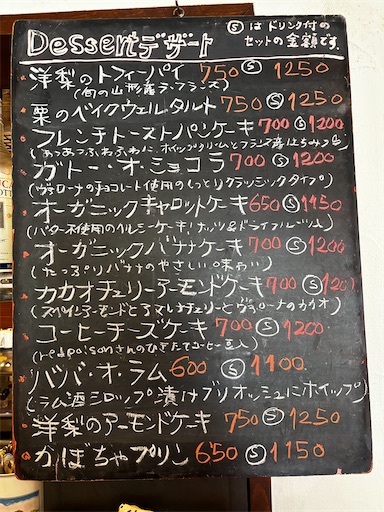 Dessertデザート
Ⓢはドリンク付の
セットの金額です。
洋梨のトフィーパイ 750 Ⓢ 1250
(旬の山形産ラ・フランス)
栗のベイクウェルタルト 750 Ⓢ 1250
フレンチトーストパンケーキ 700 Ⓢ 1200
(あつあつふわふわに、ホイップクリームとフランス産はちみつ)
ガトー・オ・ショコラ 700 Ⓢ 1200
(ヴァローナのチョコレート使用のしっとりクラッシックタイプ)
オーガニックキャロットケーキ 650 Ⓢ 1150
(バター不使用のヘルシーケーキ!ナッツ&ドライフルーツ入)
オーガニックバナナケーキ 700 Ⓢ 1200
(たっぷりバナナのやさしい味わい)
カカオチェリーアーモンドケーキ 700 Ⓢ 120
(スペインアーモンドとアマレナチェリーとヴァローナのカカオ)
コーヒーチーズケーキ 700 Ⓢ 1200
(redpoisonさんのひきたてコーヒー豆入)
ババ・オ・ラム 600 Ⓢ 1100
(ラム酒シロップ漬けブリオッシュにホイップ)
洋梨のアーモンドケーキ 750 Ⓢ 1250
かぼちゃプリン 650 Ⓢ 1150